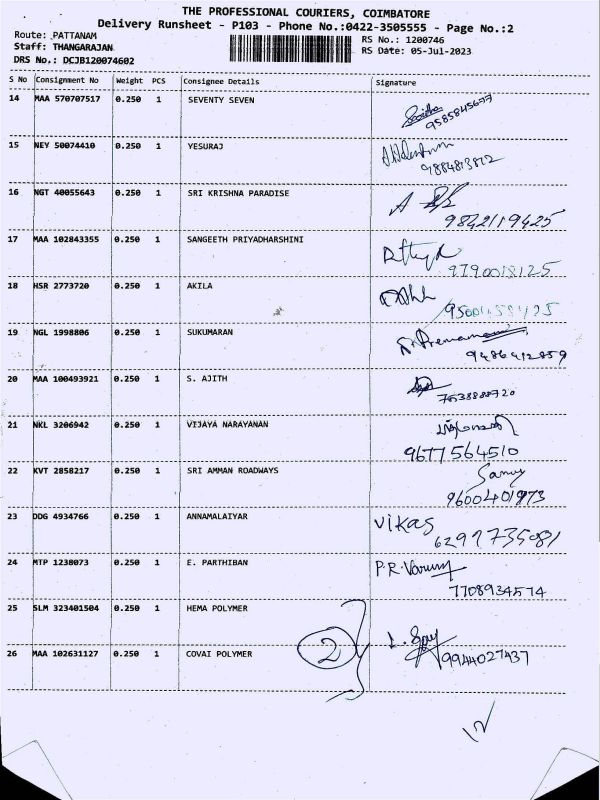 THE PROFESSIONAL COURIERS, COIMBATORE
Delivery Runsheet - P103 - Phone No.:0422-3505555 - Page No.:2
Route: PATTANAM
Staff: THANGARAJAN
DRS No.: DCJB120074602
RS No.: 1200746
RS Date: 05-Jul-2023
S No Consignment No Weight PCS Consignee Details Signature
14 MAA 570707517 0.250 1 SEVENTY SEVEN
9585845677
15 NEY 50074410 0.250 1 YESURAJ
9884813812
16 NGT 40055643 0.250 1 SRI KRISHNA PARADISE
9842119425
17 MAA 102843355 0.250 1 SANGEETH PRIYADHARSHINI
9790018125
18 HSR 2773720 0.250 1 AKILA
19 NGL 1998806 0.250 1 SUKUMARAN
9486412859
20 MAA 100493921 0.250 1 S. AJITH
21 NKL 3206942 0.250 1 VIJAYA NARAYANAN
9677564510
22 KVT 2858217 0.250 1 SRI AMMAN ROADWAYS
9600401973
23 DDG 4934766 0.250 1 ANNAMALAIYAR Vikas
6297735081
24 MTP 1238073 0.250 1 E. PARTHIBAN P.R.Varun
7708934574
25 SLM 323401504 0.250 1 HEMA POLYMER
26 MAA 102631127 0.250 1 COVAI POLYMER 2
9944027437